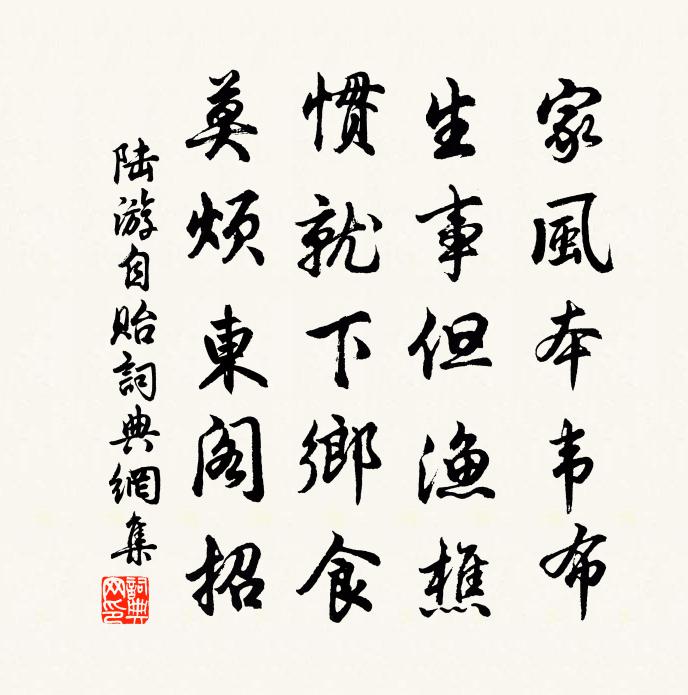 家風本韦布
生事但漁樵
慣就下鄉食
莫煩東阁招
陆游自贻詞典網集
詞典网印